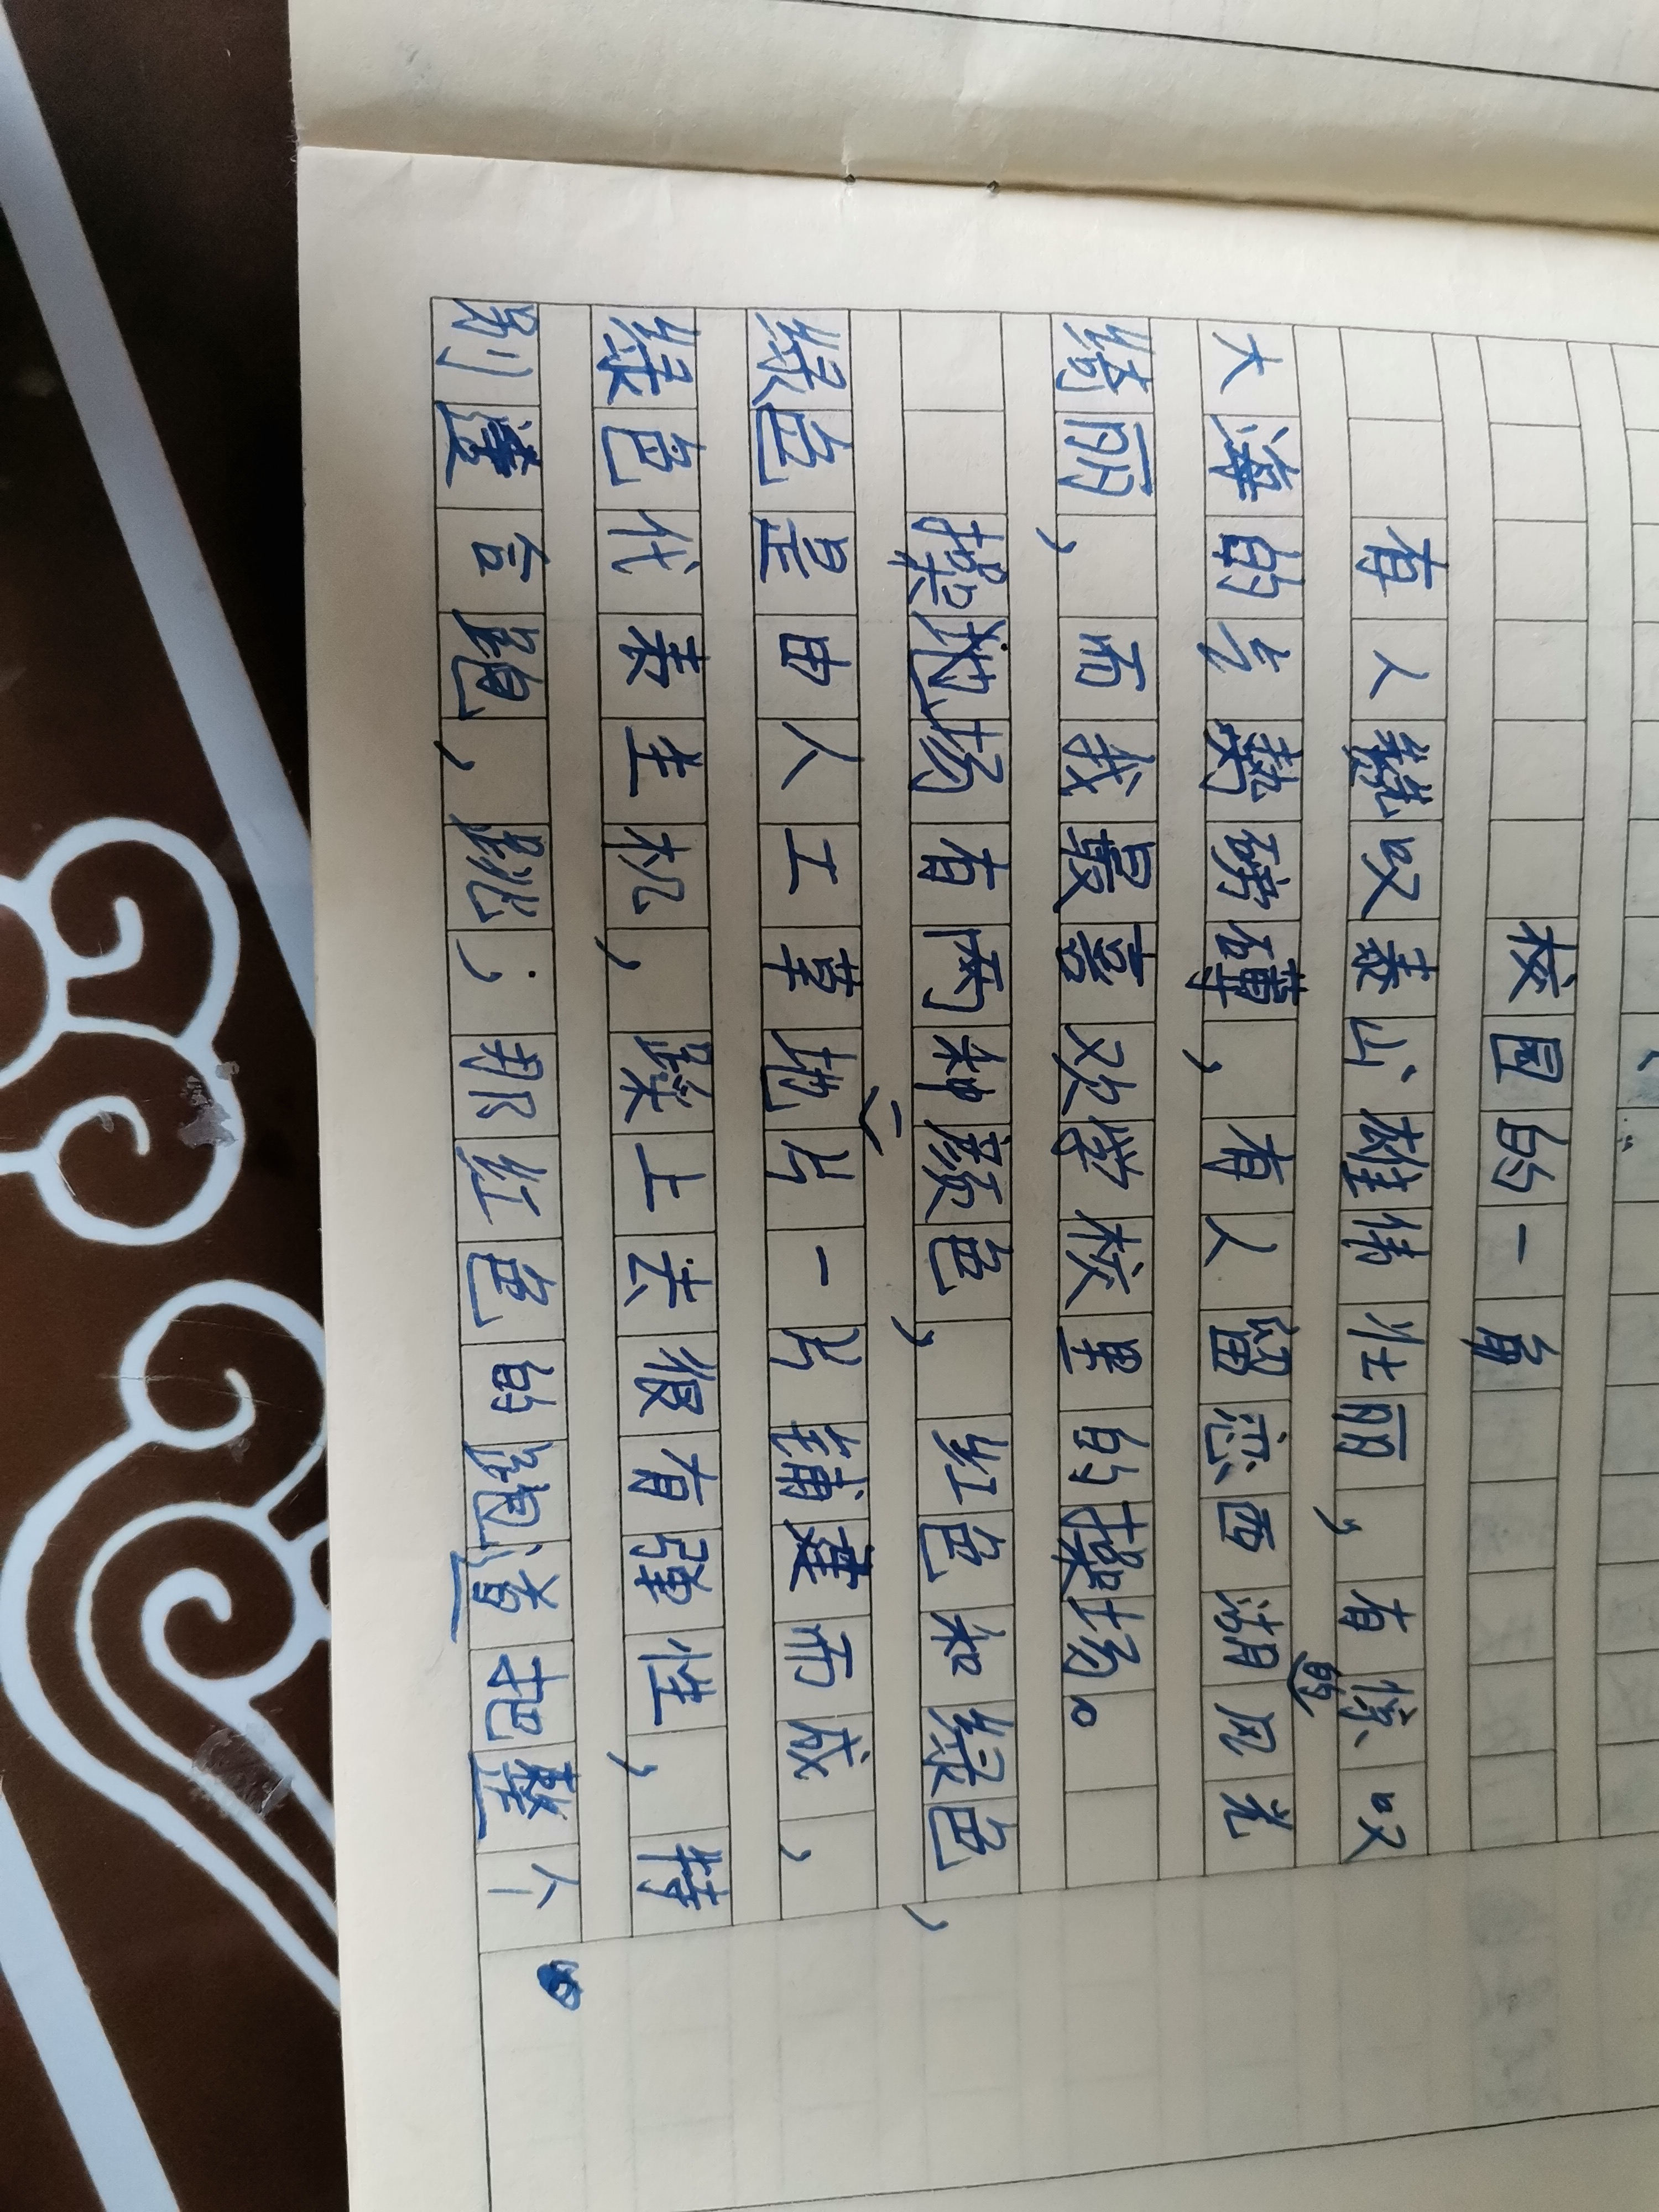 校园的一角
有人赞叹泰山雄伟壮丽，有惊叹
大海的气势磅礴，有人留恋西湖的风光
绮丽，而我最喜欢学校里的操场。
操场有两种颜色，红色和绿色，
绿色是由人工草地一片一片铺建而成，
绿色代表生机，踩上去很有弹性，特
别适合跑，跳；那红色的跑道把整个